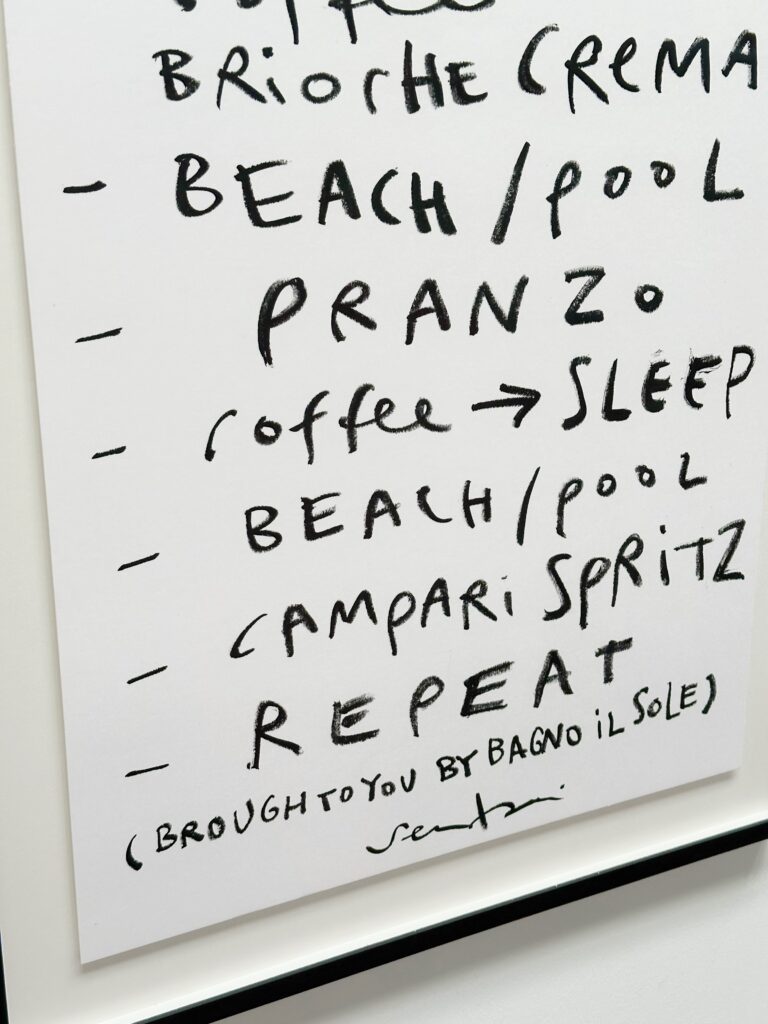 coffee
BRiocHE CREMA
- BEACH / pooL
- PRANZo
- coffee → SLEEP
- BEACH / pooL
- CAMPARi SPRiTZ
- REPEAT
(BROUGH TO YOU BY BAGNO iL SoLE)